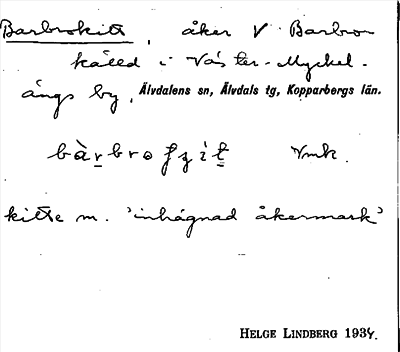 Barbrokitt, åker V Barbro
källd i Väster-Myckel-
ängs by, Älvdalens sn, Älvdals tg, Kopparbergs län.
Vmk.
kitte m. 'inhägnad åkermark'
HELGE LINDBERG 1934.